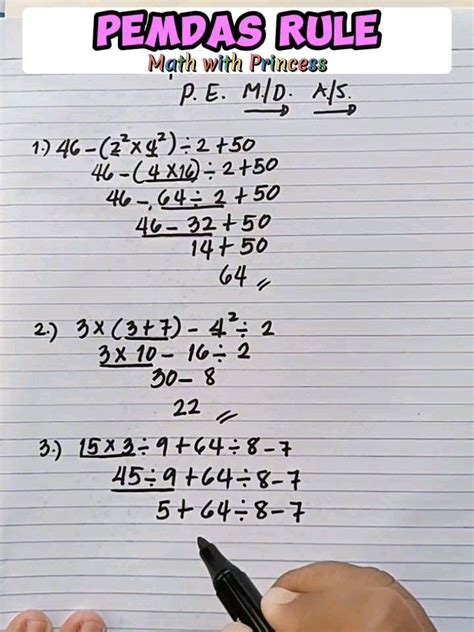 PEMDAS RULE
Math with Princess
P. E. M/D. A/S.
1.) 46 - (2² × 4²) ÷ 2 + 50
46 - (4 × 16) ÷ 2 + 50
46 - 64 ÷ 2 + 50
46 - 32 + 50
14 + 50
64 //
2.) 3 × (3 + 7) - 4² ÷ 2
3 × 10 - 16 ÷ 2
30 - 8
22 //
3.) 15 × 3 ÷ 9 + 64 ÷ 8 - 7
45 ÷ 9 + 64 ÷ 8 - 7
5 + 64 ÷ 8 - 7